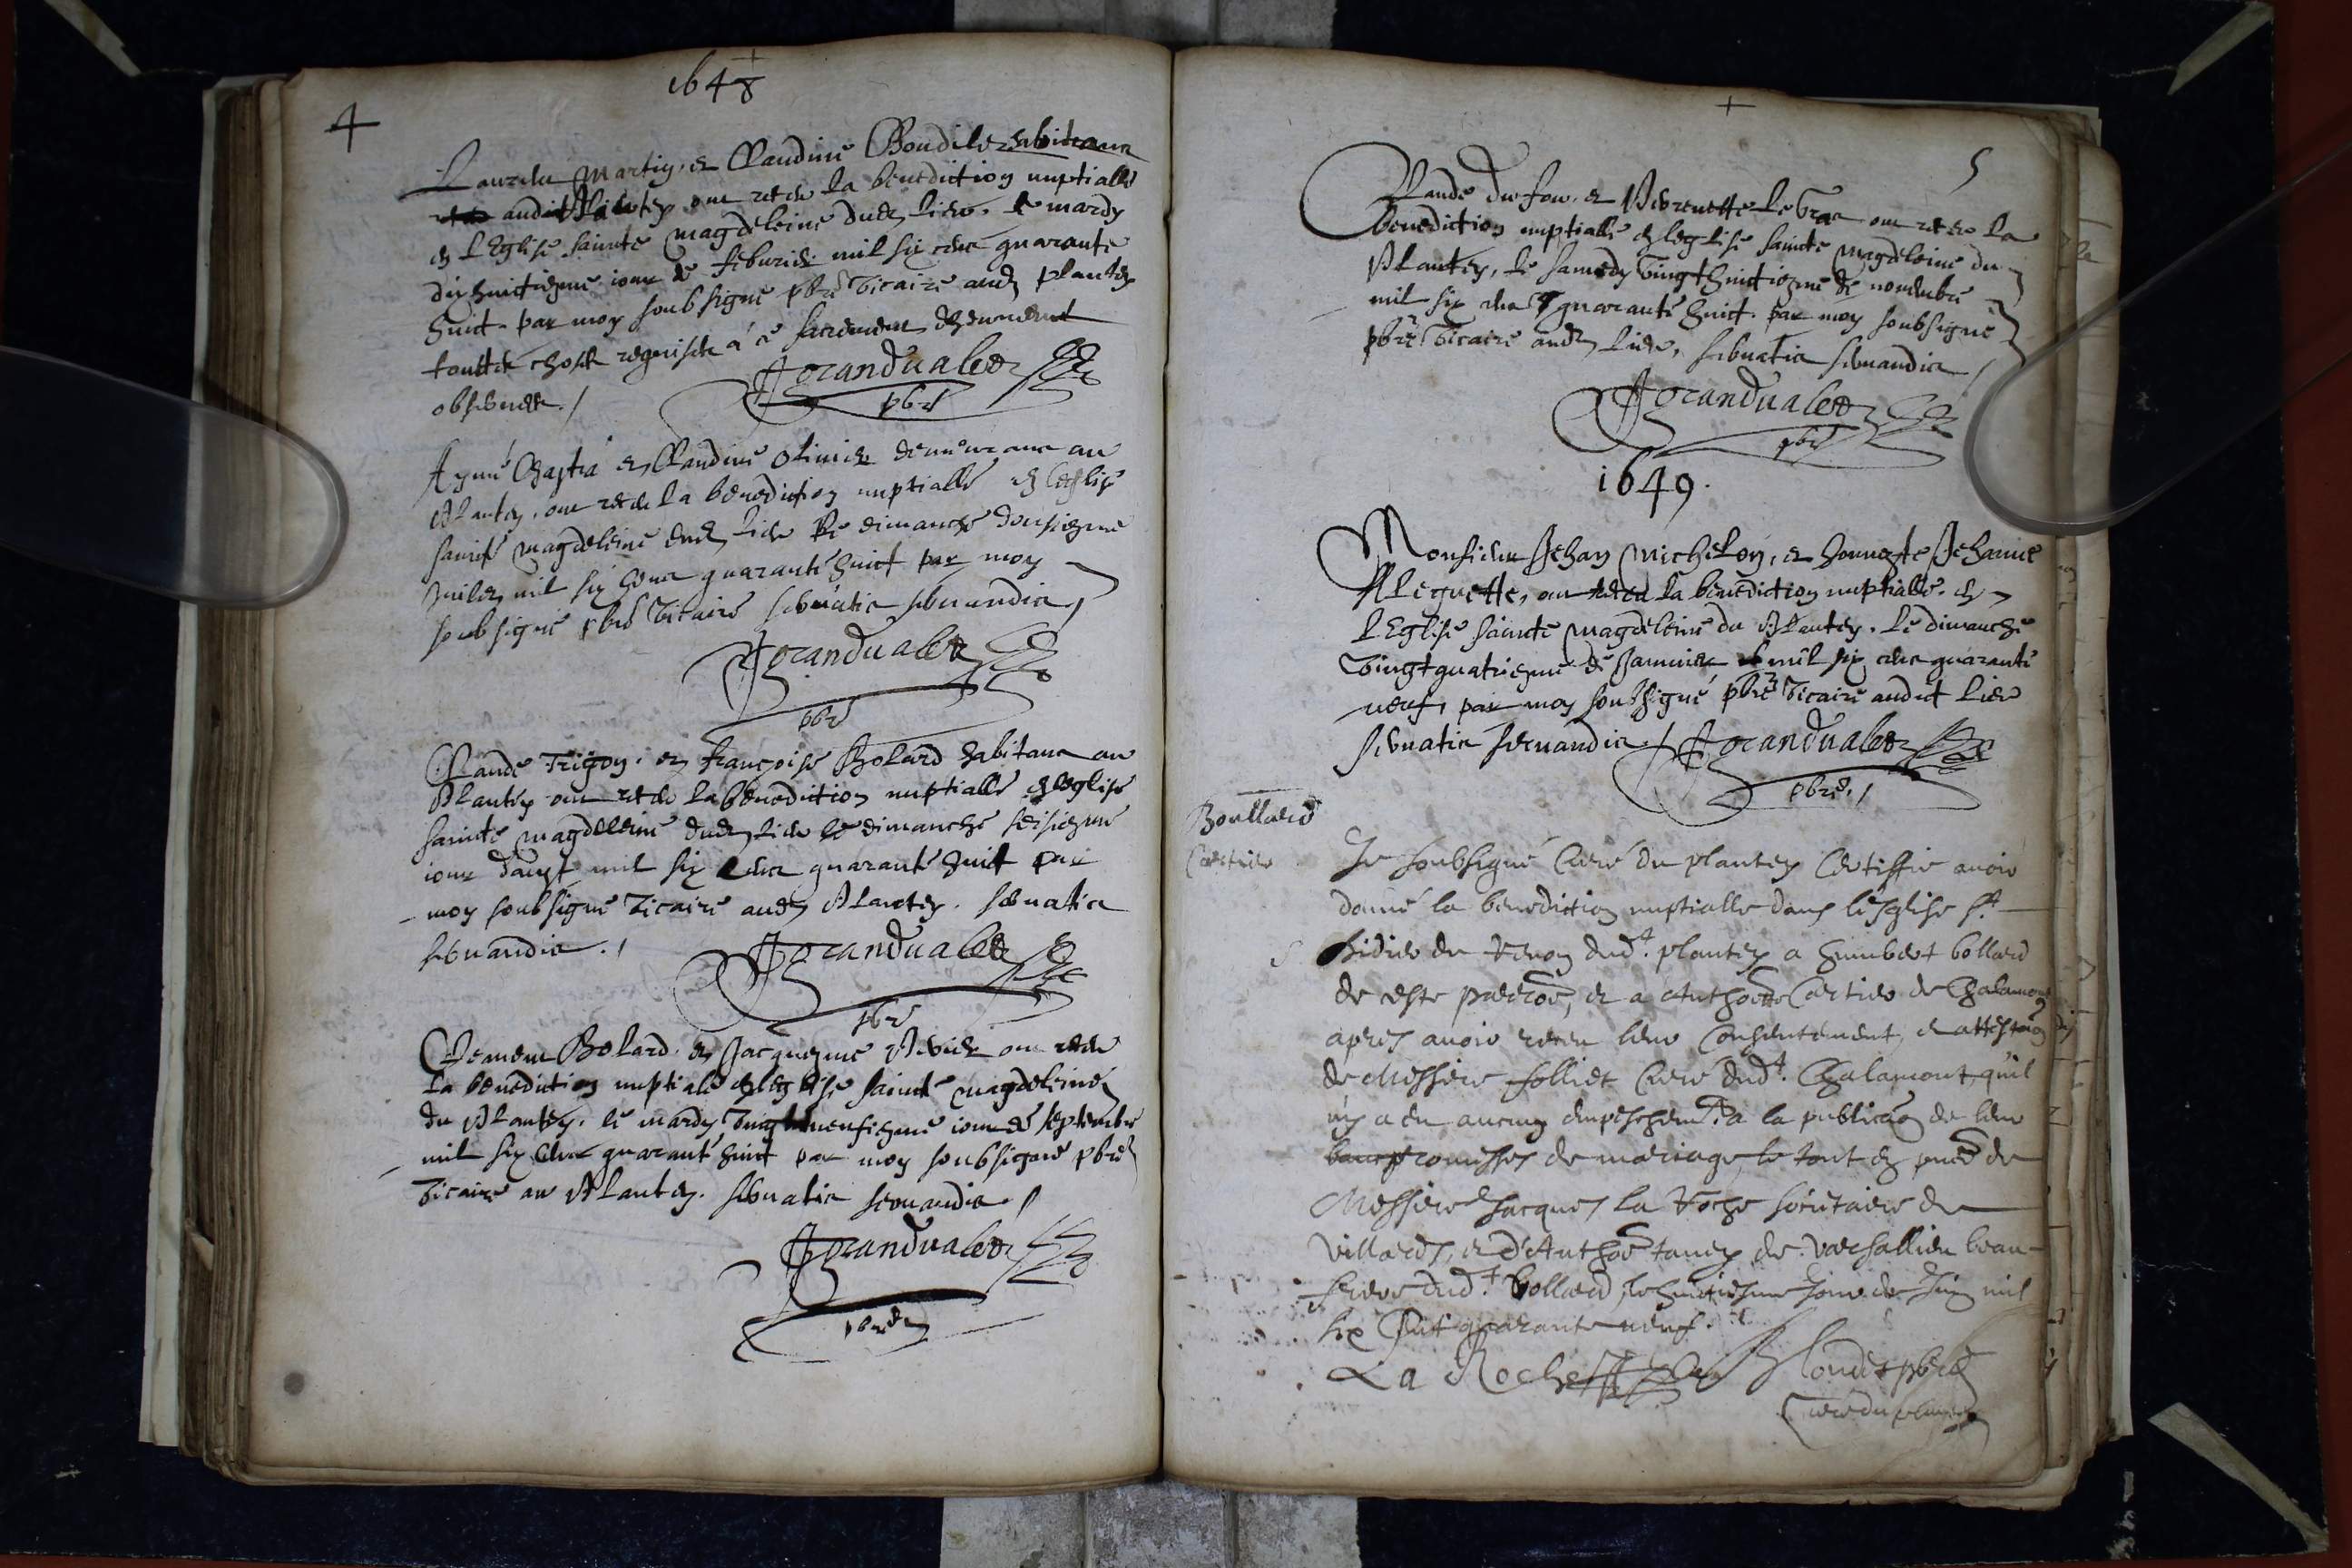 1648
4
Laurens Martin et Claudine Boudile habitans
audit Plantey ont receu la benediction nuptialle
en l'Eglise saincte Magdeleine dudt lieu, le mardy
dixhuictiesme jour de febvrier mil six cens quarante
huict par moy soubsigné pbre vicaire audt plantey
touttes choses requises à ce sacrement deuement
observees./
Grandvalet
pbre
Aymé Chastra et Claudine Olivier demeurans au
Plantey, ont receu la benediction nuptialle en l'eglise
saincte Magdeleine dudt lieu le dimanche dousiesme
juilet mil six cens quarante huict par moy
soubsigné pbre vicaire servatis servandis /
Grandvalet
pbre
Claude Trigon et Françoise Bolard habitans au
Plantey ont receu la benediction nuptialle en l'eglise
saincte Magdeleine dudt lieu le dimanche seisiesme
jour d'aust mil six cens quarante huict par
moy soubsigné vicaire audt Plantey. servatis
servandis ./
Grandvalet
pbre
Clement Bolard et Jacquesme Rivier ont receu
la benediction nuptiale en l'eglise saincte Magdeleine
du Plantey. le mardy vingtneufiesme jour de septembre
mil six cens quarante huict par moy soubsigné pbre
vicaire au Plantey. servatis servandis /
Grandvalet
pbre
5
Claude du four et Pierrenette le Gras ont receu la
benediction nuptialle en l'eglise saincte Magdeleine du
Plantey, le samedy vingthuictiesme de novembre
mil six cens quarante huict. par moy soubsigné
pbre vicaire audt lieu, servatis servandis /
Grandvalet
pbre
1649.
Monsieur Jehan Michelon, et honneste Jehanne
Alleguette, ont receu la benediction nuptialle. en
l'Eglise saincte Magdeleine du Plantey. le dimanche
vingtquatriesme de Janvier mil six cens quarante
neuf, par moy soubsigné pbre vicaire audict lieu
servatis servandis / Grandvalet
pbre. /
Boullard
Cartier
Je soubsigné Curé du plantey Certiffie avoir
donné la benediction nuptialle dans l'esglise St
Didier de Renon dudt. plantey a humbert bollard
de ceste parroe, et a Anthoette Cartier de Chalamont
apres avoir receu leur Consentement, et attestaon
de Messire folliet Curé dudt. Chalamont, qu'il
ny a eu aucung empeschemt. a la publicaon de leur
promesses de mariage, le tout en pnce de
Messire Jacques la Roche sociétaire de
Villards, et d'Anthoe taney de Varsallieu beau-
frere dudt. bollard, le huictiesme Jour de Juin mil
six Cent quarante neuf.
La Roche Blondet pbre
Curé du plantey